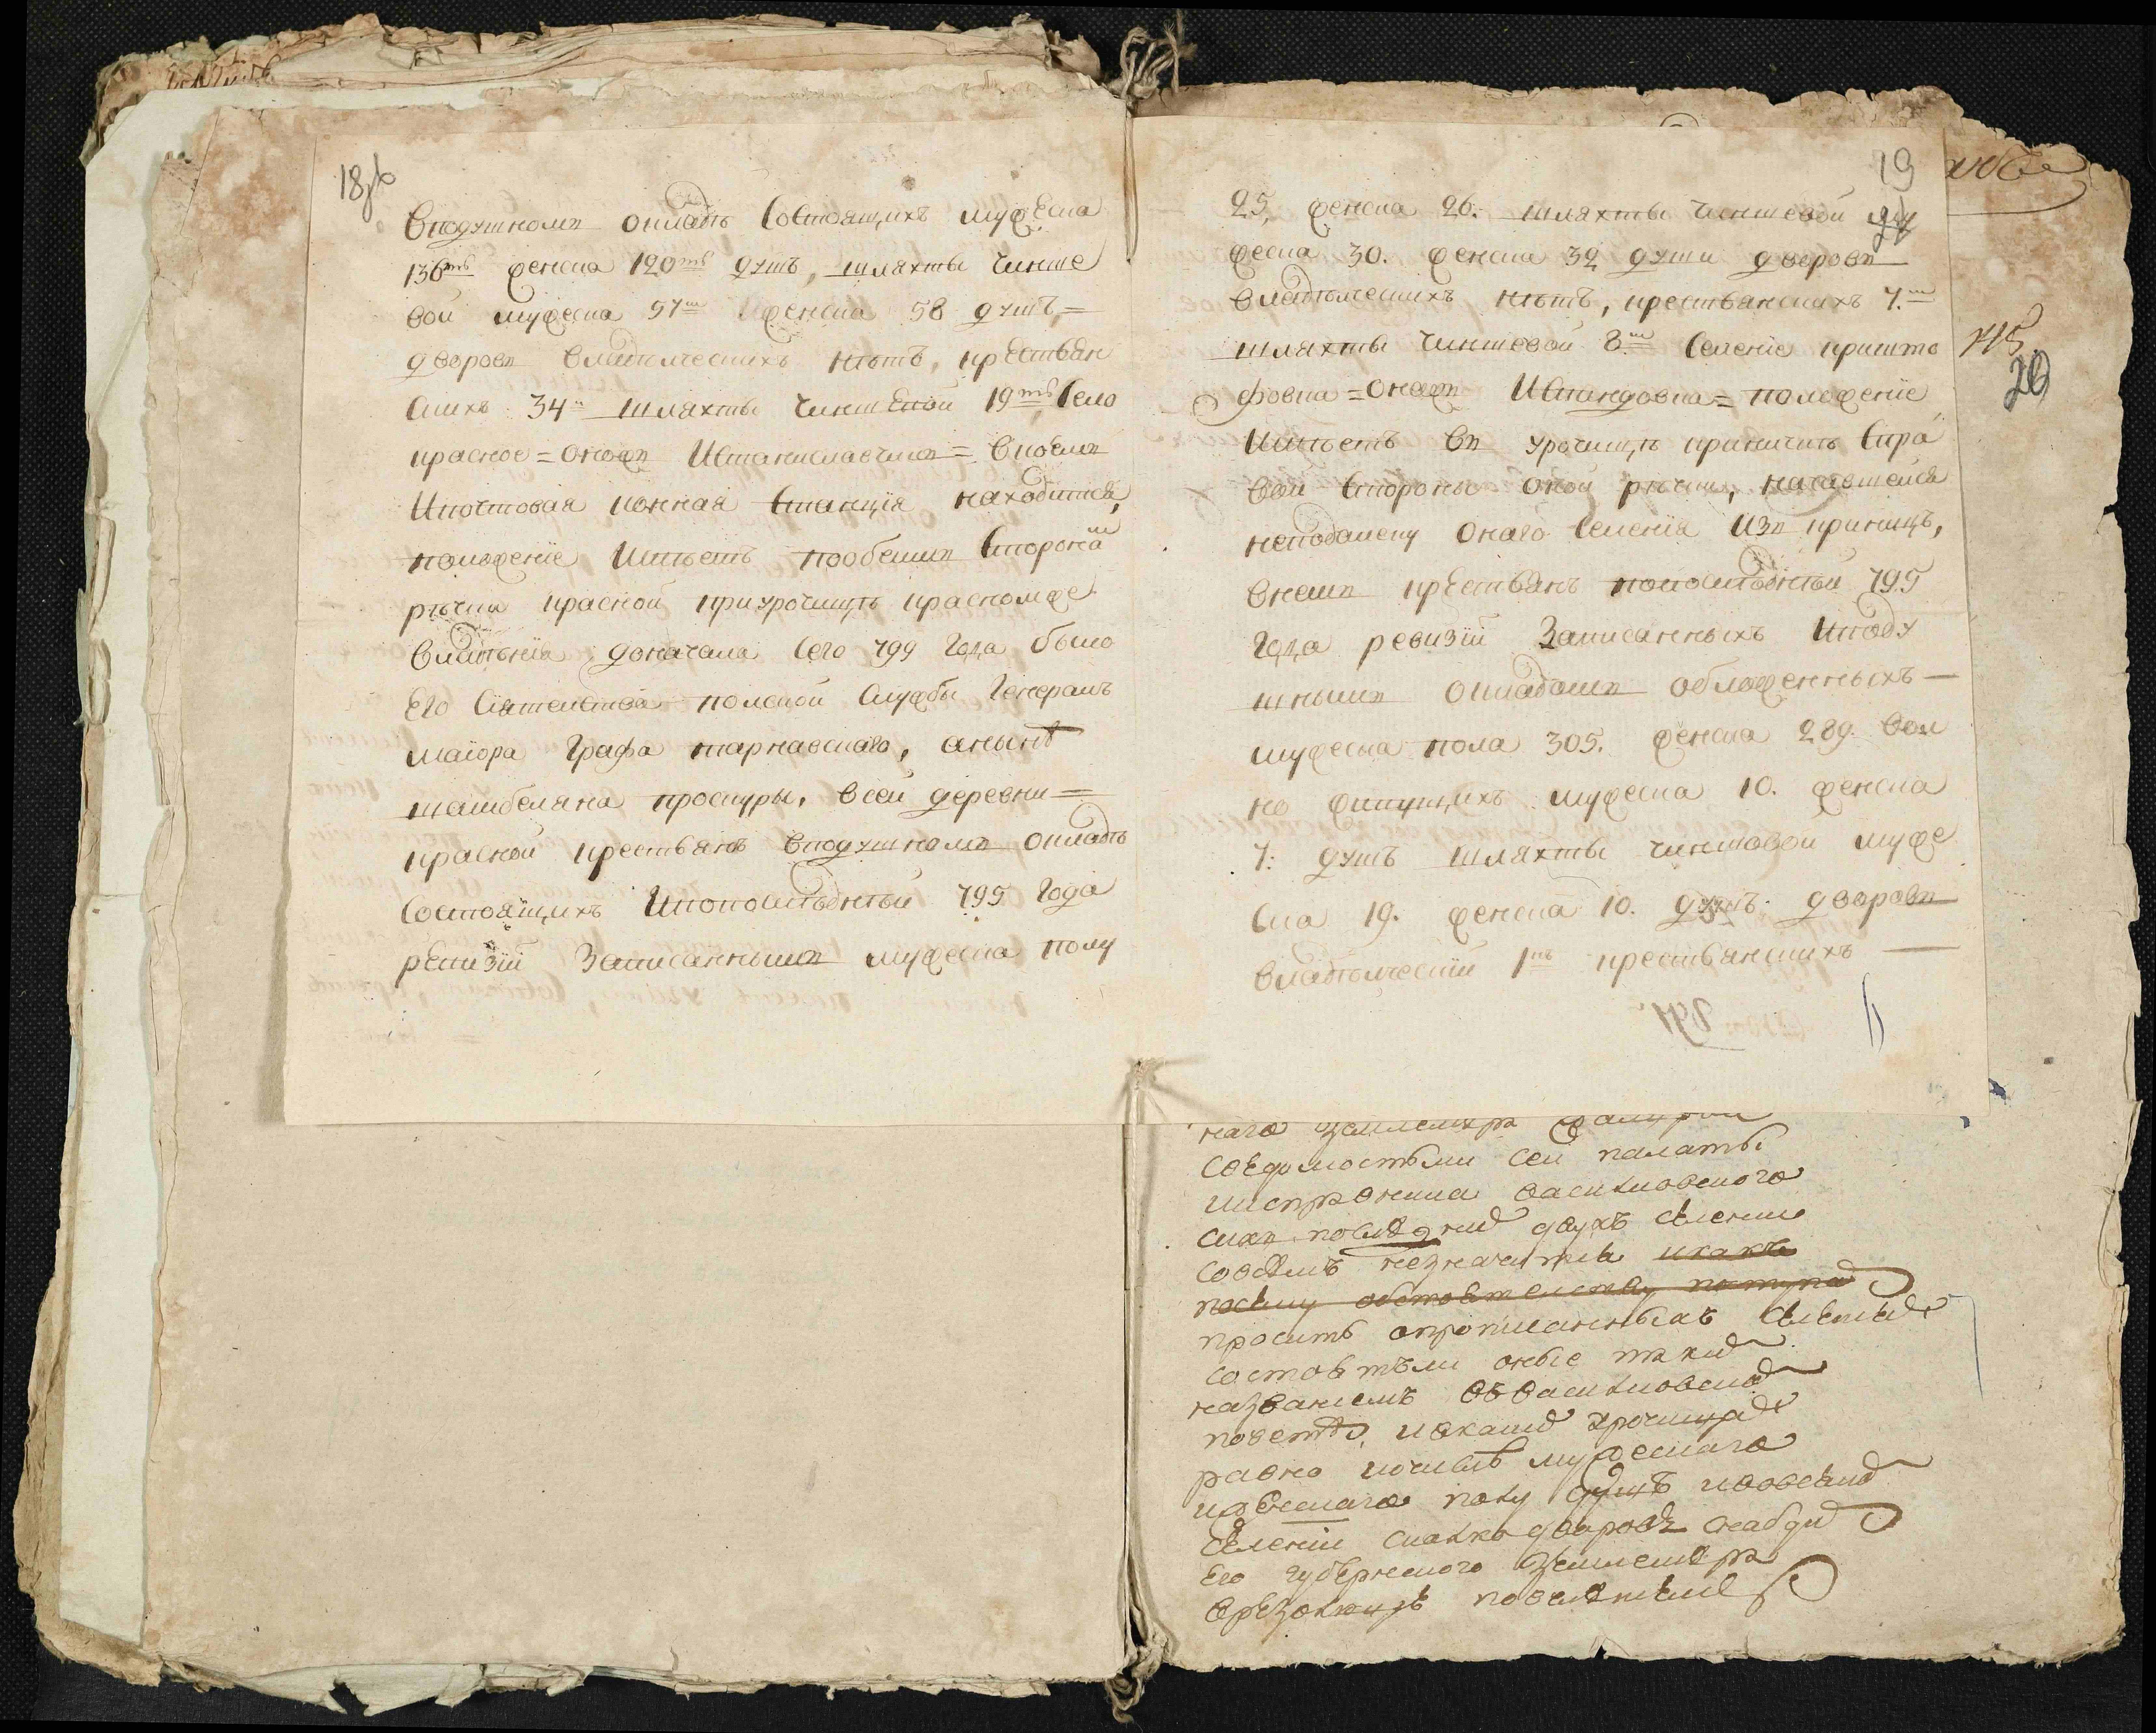 18об
Вподушномъ окладѣ Состоящихъ мужеска
136ть женска 120ть душъ, шляхты чинше
вой мужеска 57м Иженска 58 душъ, =
дворовъ владѣлческихъ нѣтъ, крестьян
скихъ 34и шляхты чиншевой 19ть Село
красное = оножъ Истаниславчикъ = вкоемъ
Ипочтовая конная Станцїя находится,
положенїе Имѣетъ пообеимъ Сторонам
рѣчки красной приурочищѣ красномже
владѣнїя доначала Сего 799 года было
Его Сїятелства полской Службы Генералъ
маїора Графа тарнавскаго, анынѣ
шамбеляна проскуры, всей деревни =
красной крестьянъ вподушномъ окладѣ
Состоящихъ Ипопослѣдней 795 года
ревизїи Записаннымъ мужеска полу
19
25, женска 26. шляхты чиншевой му
жеска 30. женска 32 души дворовъ
владѣлческихъ нѣтъ, крестьянскихъ 7.м
шляхты чиншевой 8м Селенїе кришто
фовка = онажъ = положенїе
Имѣетъ въ урочищѣ криничить Спра
вой Стороны оной рѣчки, начавшейся
неподалеку онаго Селенїя Изъ криницъ,
внемъ крестьянъ попослѣдней 795
года ревизїи Записанныхъ Иподу
шнымъ окладомъ обложенныхъ —
мужеска пола 305. женска 289. вол
но живущихъ мужеска 10. женска
7: душъ шляхты чиншовой муже
ска 19. женска 10. душъ. дворовъ
владѣлческїй 1нъ крестьянскихъ —
715
20
наго землемѣра
Сведомостьми сей палаты
исправника василковского
сихъ последнихъ двухъ селении
совсемъ незначится икакъ
посему обстоятелству
просить опрописанныхъ
состоятъли оные подъ
названиемъ въ василковско
повете, икакие урочища
равно мужескаго
иженскаго полу душъ
селении сколко дворовъ снабди
Его губернского землемера